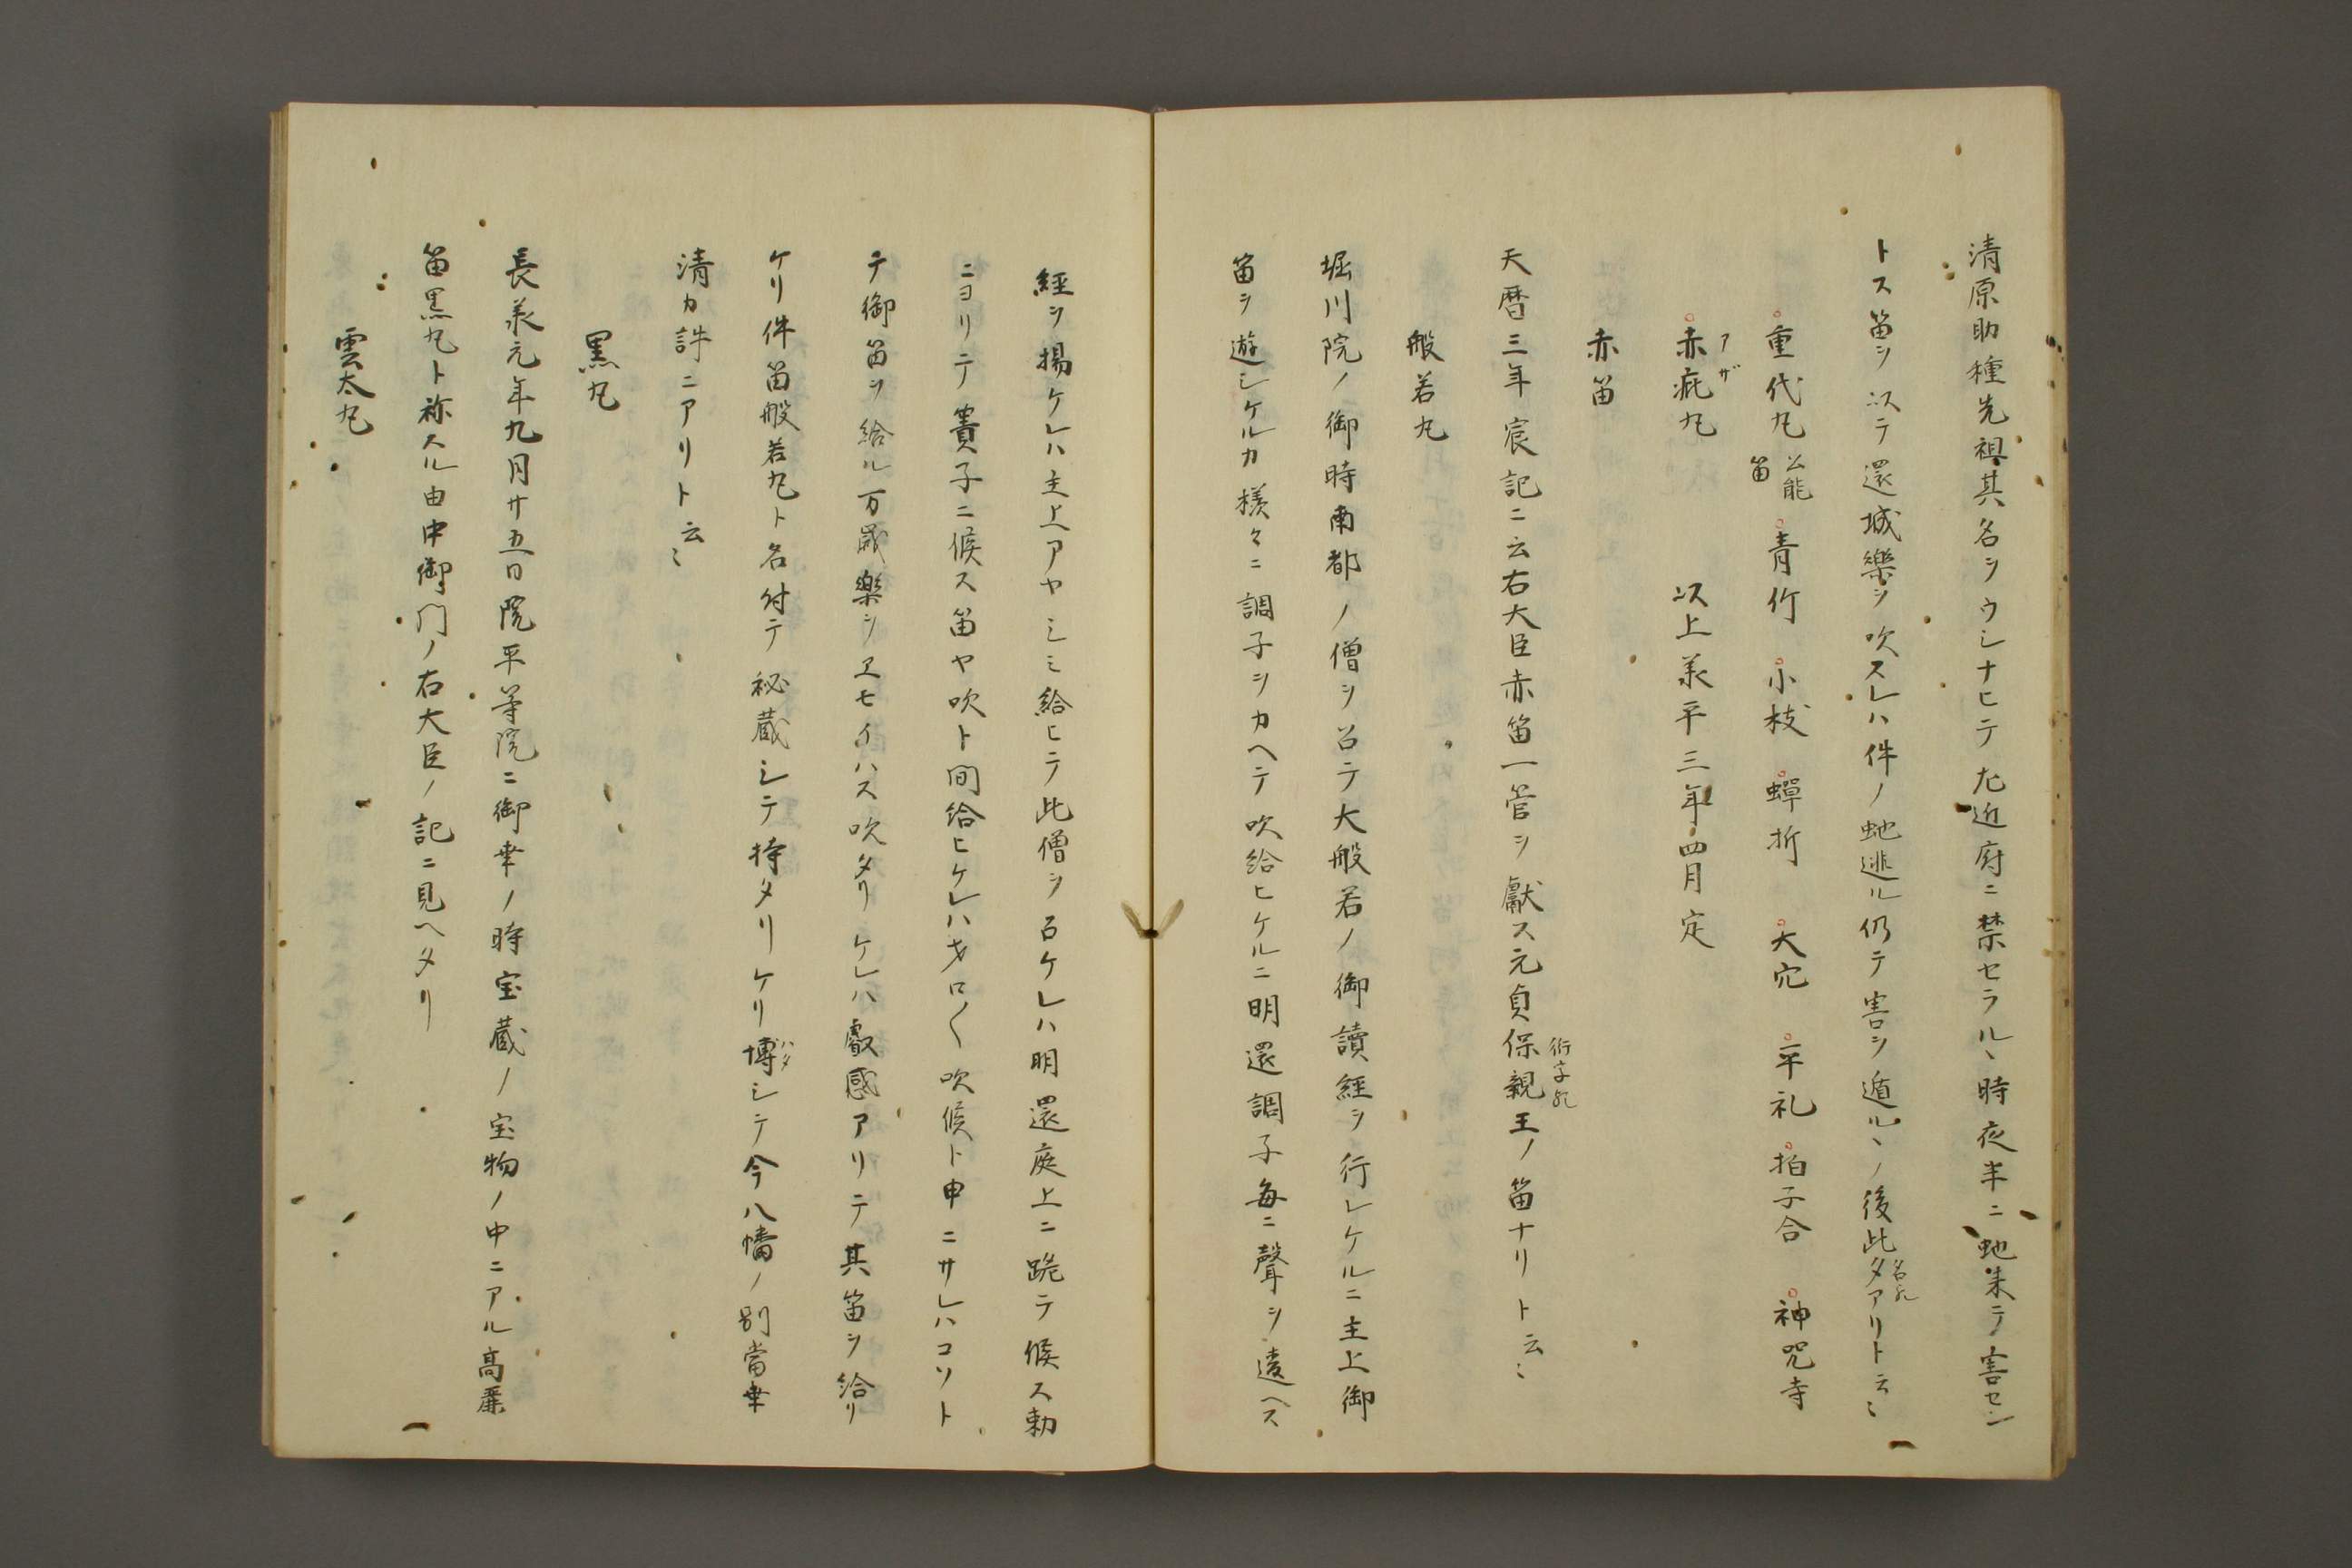 清原助種先祖其名ヲウシナヒテ尤近府ニ禁セラル丶時夜半ニ虵来テ害セン
トス笛ヲ以テ還城樂ヲ吹スレハ件ノ虵逃ル仍テ害ヲ遁ル丶ノ後此名アリト云〻
重代丸 公能笛 青竹 小枝 蟬折 大穴 平礼 拍子合 神咒寺
赤疵丸 アザ 以上承平三年四月定
赤笛
天暦三年宸記ニ云右大臣赤笛一管ヲ獻ス元貞保親王ノ笛ナリト云〻
般若丸
堀川院ノ御時南都ノ僧ヲ召テ大般若ノ御讀經ヲ行レケルニ主上御
笛ヲ遊シケルカ様々ニ調子ヲカヘテ吹給ヒケルニ明還調子毎ニ聲ヲ違ヘス
經ヲ揚ケレハ主上アヤシミ給ヒテ此僧ヲ召ケレハ明還庭上ニ跪テ候ス勅
ニヨリテ簀子ニ候ス笛ヤ吹ト問給ヒケレハオロ〱吹候ト申ニサレハコソト
テ御笛ヲ給ル万歳樂ヲヱモイハス吹タリケレハ叡感アリテ其笛ヲ給リ
ケリ件笛般若丸ト名付テ秘蔵シテ持タリケリ博シテ今八幡ノ別當幸
清カ許ニアリト云〻
黒丸
長承元年九月廿五日院平等院ニ御幸ノ時宝蔵ノ宝物ノ中ニアル髙麗
笛黒丸ト称スル由中御門ノ右大臣ノ記ニ見ヘタリ
雲太丸